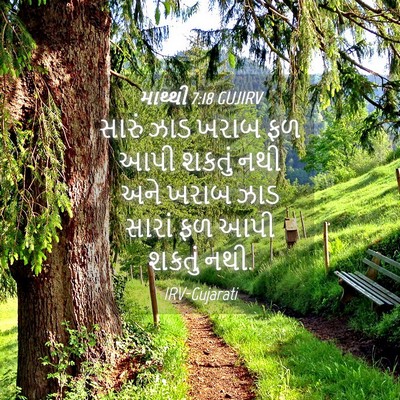 માથ્થી 7:18 GUJIRV
સારું ઝાડ ખરાબ ફળ
આપી શકતું નથી
અને ખરાબ ઝાડ
સારાં ફળ આપી
શકતું નથી.
IRV-Gujarati